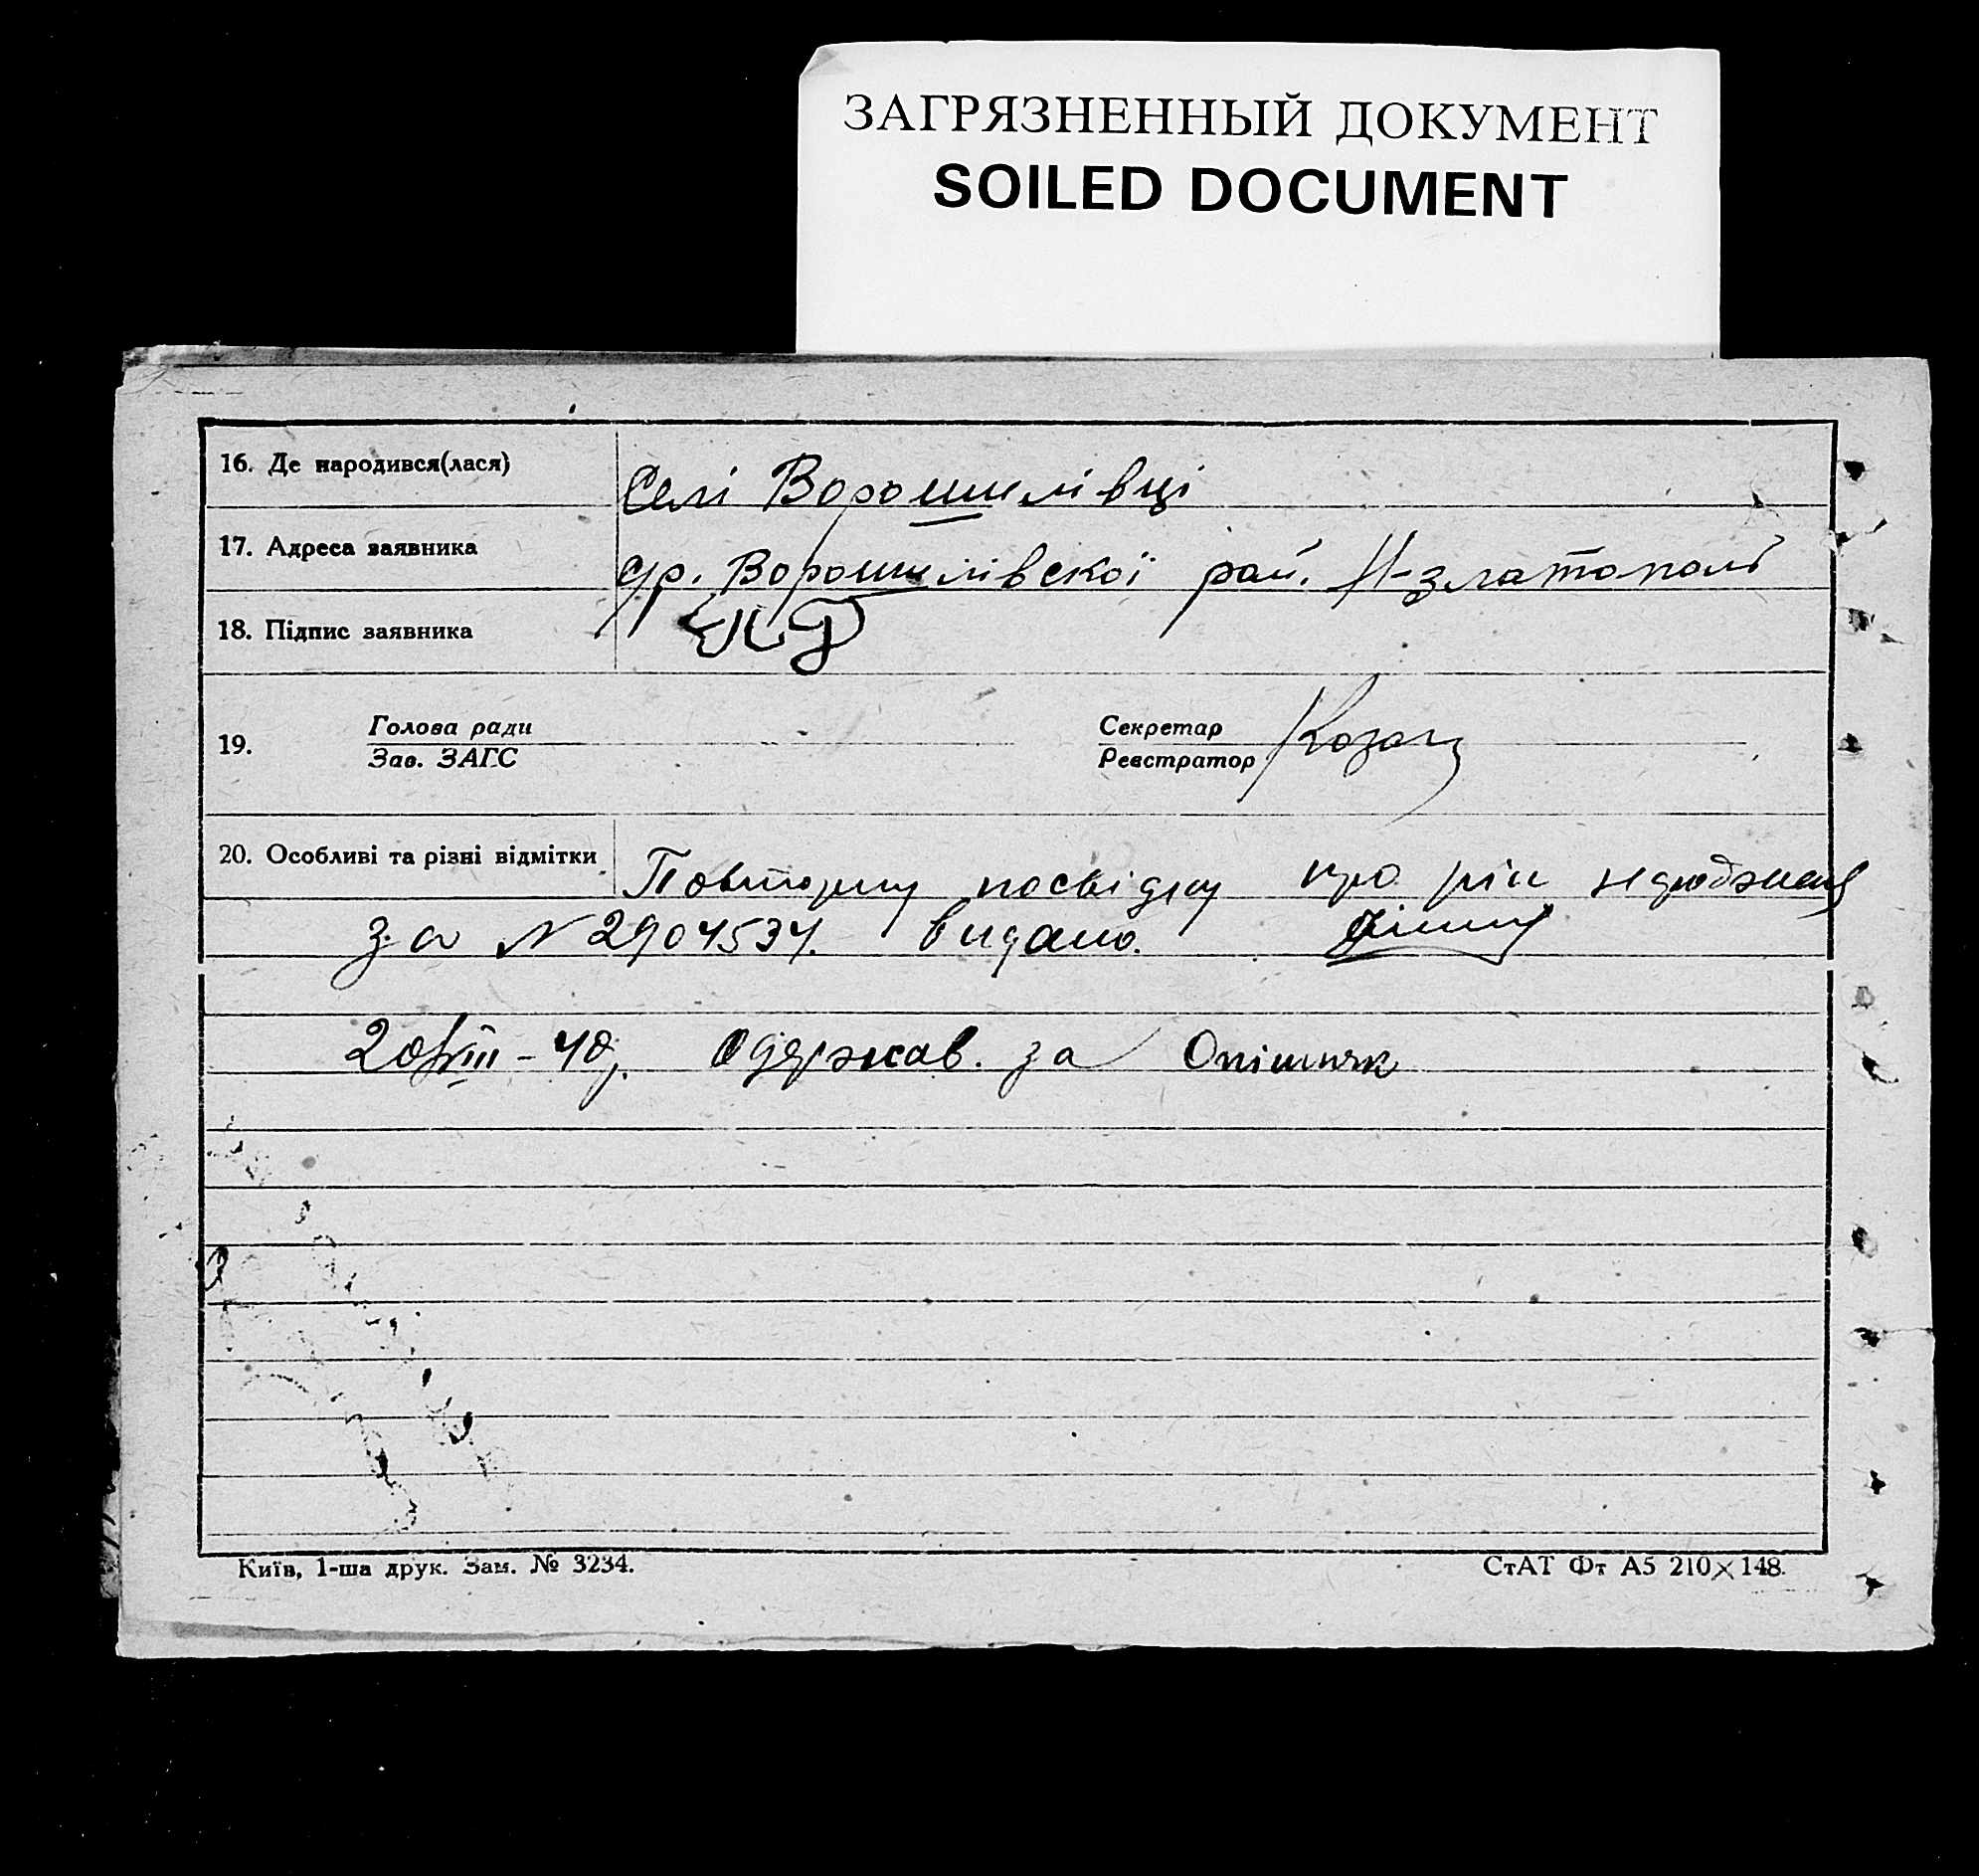 ЗАГРЯЗНЕННЫЙ ДОКУМЕНТ
SOILED DOCUMENT
16. Де народився(лася) Селі Ворошилівці
17. Адреса заявника Ворошилівскої рай. Н-златополь
18. Підпис заявника
19. Голова ради
Зав. ЗАГС
Секретар
Реєстратор Козац
20. Особливі та різні відмітки Повторну посвідку про
за N 2904534. видано.
20/VIII-40р. Одержав. за Опішняк
Київ, 1-ша друк. Зам. № 3234. СтАТ Фт А5 210×148.